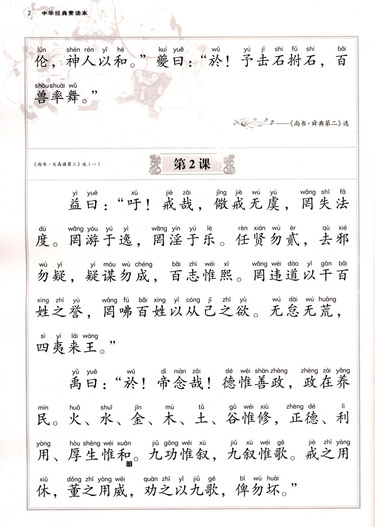 2 中华经典素读本
lún shén rén yǐ hé kuí yuē wū yú jī shí fǔ shí bǎi
伦，神人以和。”夔曰：“於！予击石拊石，百
shòu shuài wǔ
兽率舞。”
——《尚书·舜典第二》选
《尚书·大禹谟第三》选（一）
第2课
yì yuē xū jiè zāi jǐng jiè wú yú wǎng shī fǎ
益曰：“吁！戒哉，儆戒无虞，罔失法
dù wǎng yóu yú yì wǎng yín yú lè rèn xián wù èr qù xié
度。罔游于逸，罔淫于乐。任贤勿贰，去邪
wù yí yí móu wù chéng bǎi zhì wéi xī wǎng wéi dào yǐ gān bǎi
勿疑，疑谋勿成，百志惟熙。罔违道以干百
xìng zhī yù wǎng fú bǎi xìng yǐ cóng jǐ zhī yù wú dài wú huāng
姓之誉，罔咈百姓以从己之欲。无怠无荒，
sì yí lái wáng
四夷来王。”
yǔ yuē wū dì niàn zāi dé wéi shàn zhèng zhèng zài yǎng
禹曰：“於！帝念哉！德惟善政，政在养
mín huǒ shuǐ jīn mù tǔ gǔ wéi xiū zhèng dé lì
民。火、水、金、木、土、谷惟修，正德、利
yòng hòu shēng wéi hé jiǔ gōng wéi xù jiǔ xù wéi gē jiè zhī yòng
用、厚生惟和。九功惟叙，九叙惟歌。戒之用
xiū dǒng zhī yòng wēi quàn zhī yǐ jiǔ gē bǐ wù huài
休，董之用威，劝之以九歌，俾勿坏。”